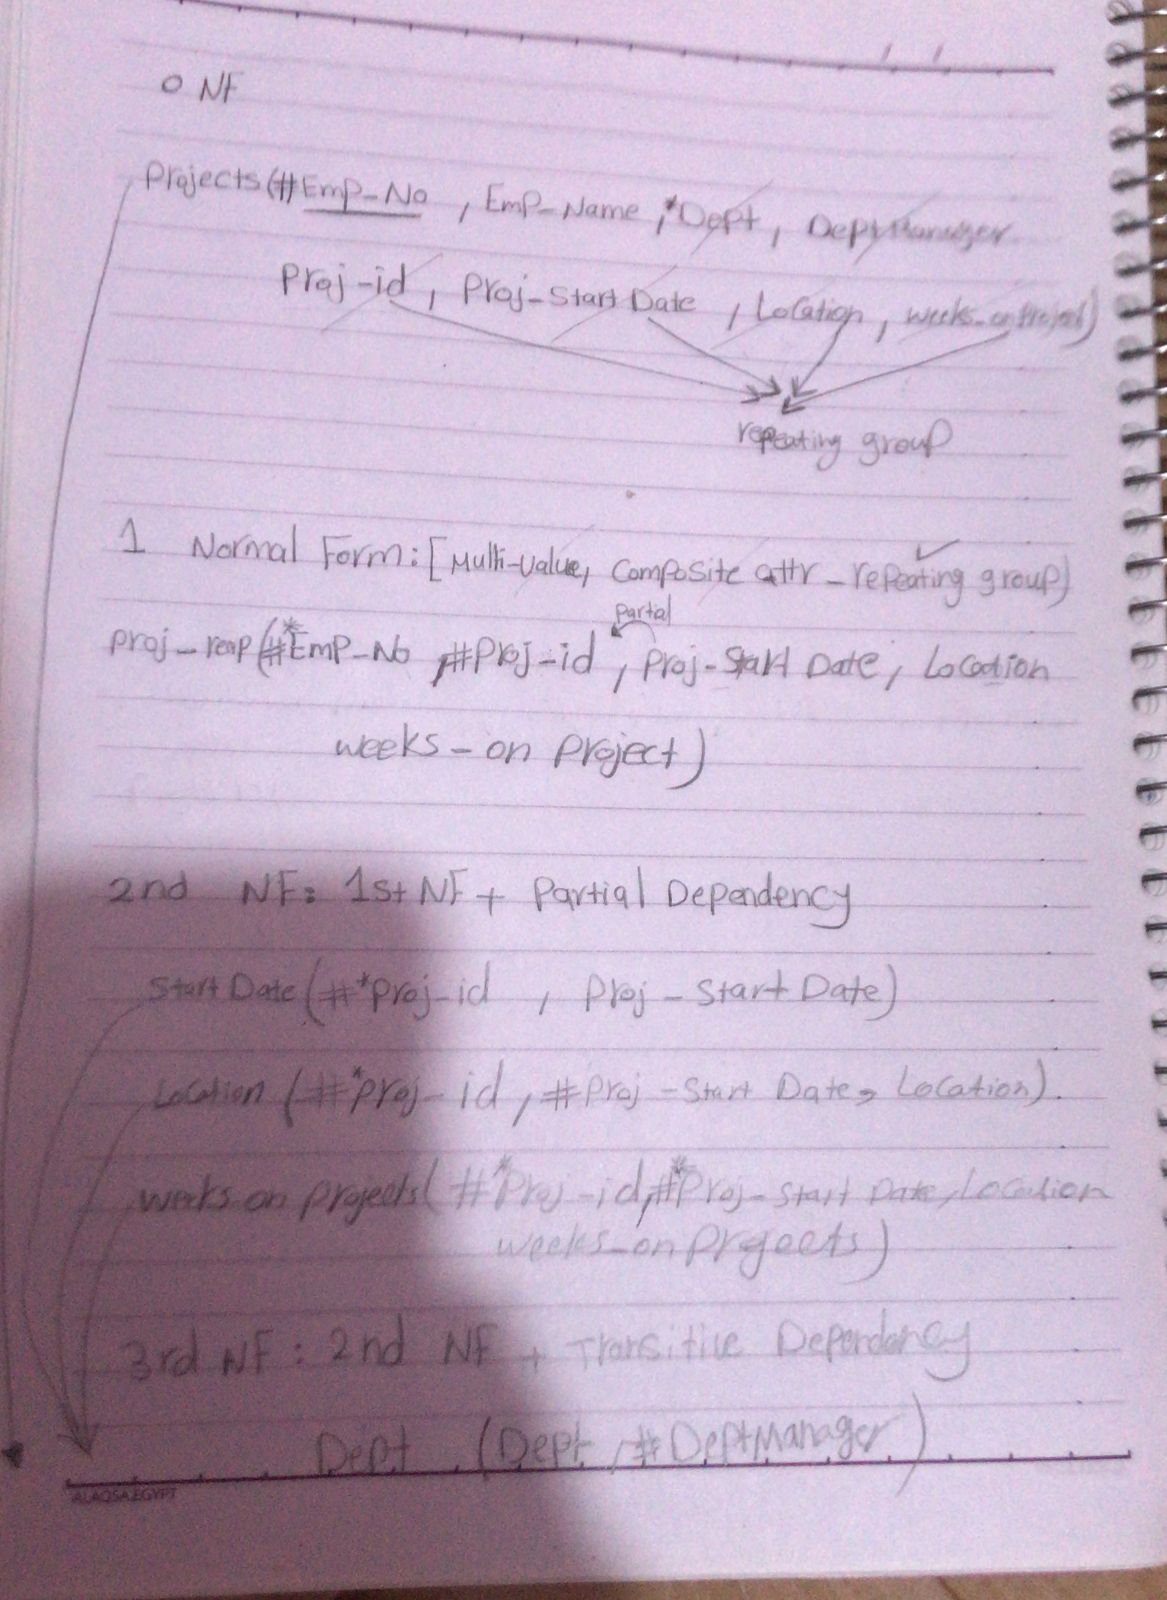 0 NF
Projects(#Emp_No , Emp_Name ,*Dept , DeptManager
Proj-id , Proj-Start Date , Location , weeks_onProject)
repeating group
1 Normal Form:[Multi-value, Composite attr_repeating group)
partial
Proj_reap(#*Emp_No ,#Proj-id , Proj-Start Date, Location
weeks_on Project)
2nd NF: 1st NF + Partial Dependency
Start Date(#*Proj-id , Proj - Start Date)
Location (#*Proj-id , #Proj -Start Date, Location).
weeks on projects(#*Proj-id,#*Proj-Start Date, Location
weeks_on Projects)
3rd NF : 2nd NF + Transitive Dependancy
Dept (Dept , #DeptManager)
ALAQSA.EGYPT